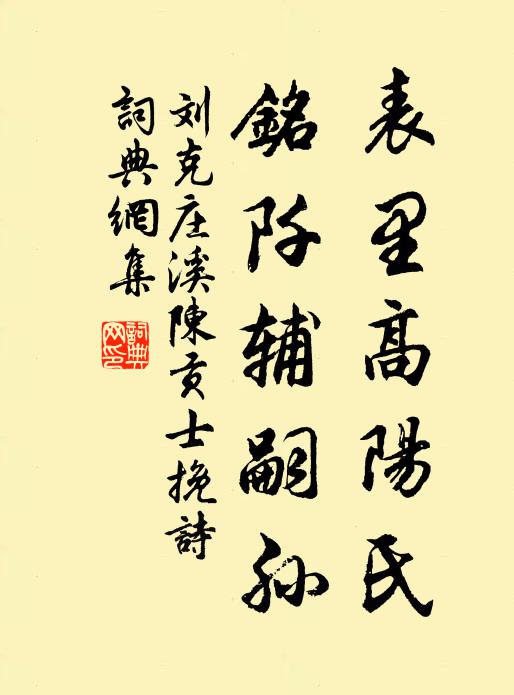 表里高陽氏
銘阡辅嗣孙
刘克庄溪陳贡士挽詩
詞典網集
詞典网印